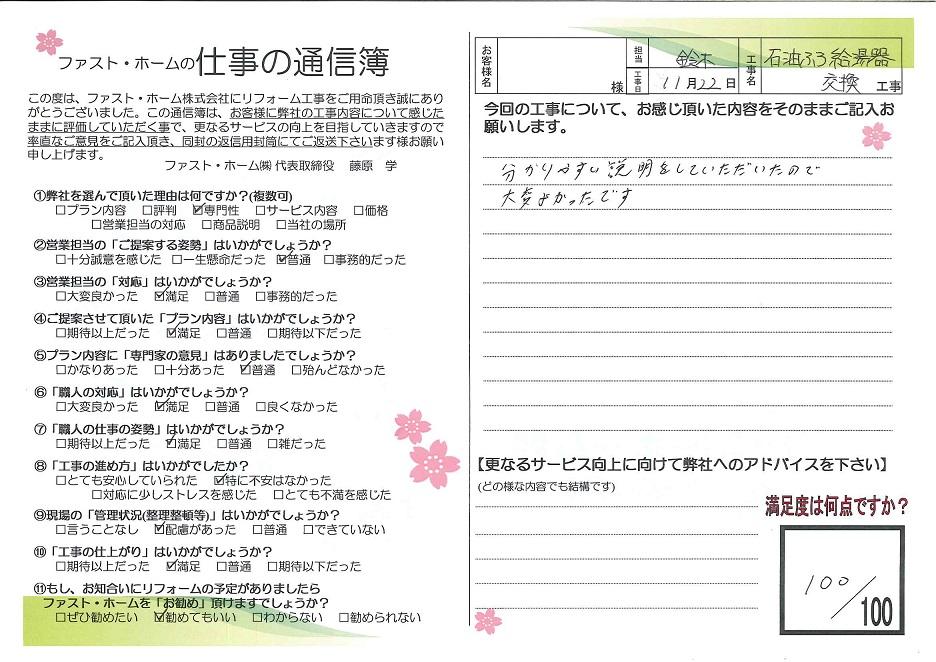 ファスト・ホームの仕事の通信簿
この度は、ファスト・ホーム株式会社にリフォーム工事をご用命頂き誠にあり
がとうございました。この通信簿は、お客様に弊社の工事内容について感じた
ままに評価していただく事で、更なるサービスの向上を目指していきますので
率直なご意見をご記入頂き、同封の返信用封筒にてご返送下さいます様お願い
申し上げます。
ファスト・ホーム㈱ 代表取締役 藤原 学
①弊社を選んで頂いた理由は何ですか?(複数可)
□プラン内容 □評判 ☑専門性 □サービス内容 □価格
□営業担当の対応 □商品説明 □当社の場所
②営業担当の「ご提案する姿勢」はいかがでしょうか?
□十分誠意を感じた □一生懸命だった ☑普通 □事務的だった
③営業担当の「対応」はいかがでしょうか?
□大変良かった ☑満足 □普通 □事務的だった
④ご提案させて頂いた「プラン内容」はいかがでしょうか?
□期待以上だった ☑満足 □普通 □期待以下だった
⑤プラン内容に「専門家の意見」はありましたでしょうか?
□かなりあった □十分あった ☑普通 □殆んどなかった
⑥「職人の対応」はいかがでしょうか?
□大変良かった ☑満足 □普通 □良くなかった
⑦「職人の仕事の姿勢」はいかがでしょうか?
□期待以上だった ☑満足 □普通 □雑だった
⑧「工事の進め方」はいかがでしたか?
□とても安心していられた ☑特に不安はなかった
□対応に少しストレスを感じた □とても不満を感じた
⑨現場の「管理状況(整理整頓等)」はいかがでしょうか?
□言うことなし ☑配慮があった □普通 □できていない
⑩「工事の仕上がり」はいかがでしょうか?
□期待以上だった ☑満足 □普通 □期待以下だった
⑪もし、お知合いにリフォームの予定がありましたら
ファスト・ホームを「お勧め」頂けますでしょうか?
□ぜひ勧めたい ☑勧めてもいい □わからない □勧められない
お客様名 様 担当 鈴木 工事名 石油ふろ給湯器
工事日 11月22日 交換 工事
今回の工事について、お感じ頂いた内容をそのままご記入お
願いします。
分かりやすい説明をしていただいたので
大変よかったです
【更なるサービス向上に向けて弊社へのアドバイスを下さい】
(どの様な内容でも結構です)
満足度は何点ですか?
100/100